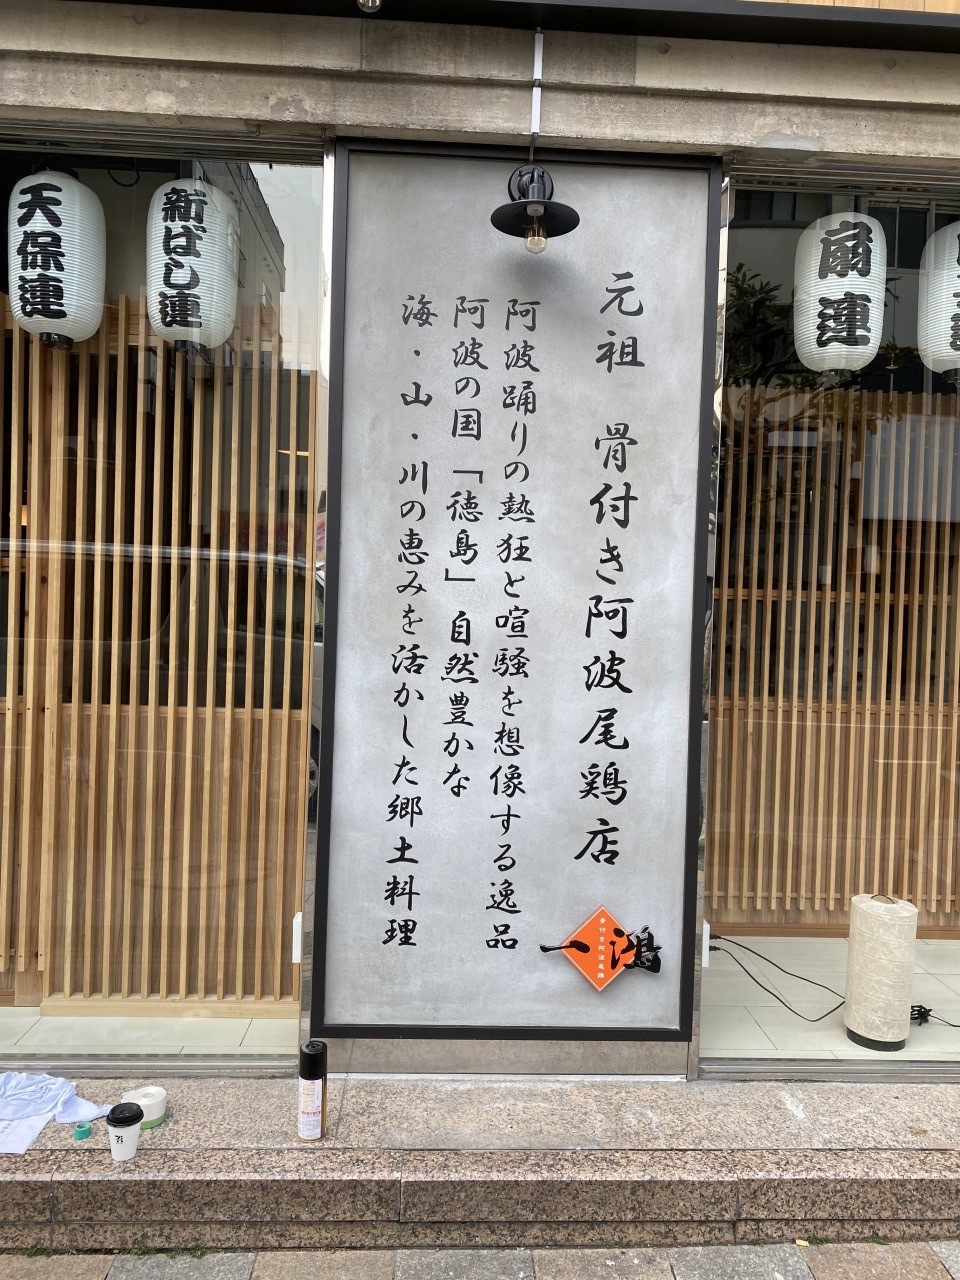 元祖 骨付き阿波尾鶏店
阿波踊りの熱狂と喧騒を想像する逸品
阿波の国「徳島」自然豊かな
海・山・川の恵みを活かした郷土料理
骨付き阿波尾鶏
一鴻
天保連
新ばし連
扇連